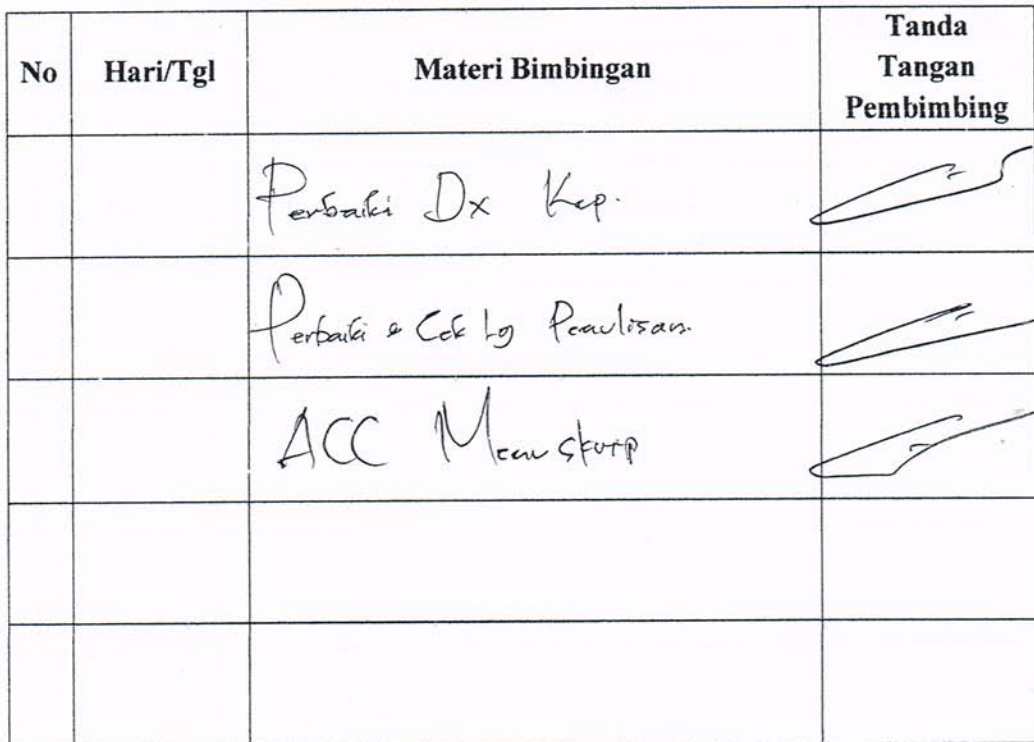 No Hari/Tgl Materi Bimbingan Tanda Tangan Pembimbing
Perbaiki Dx Kep.
Perbaiki & Cek Lg Penulisan.
ACC Manuskrip